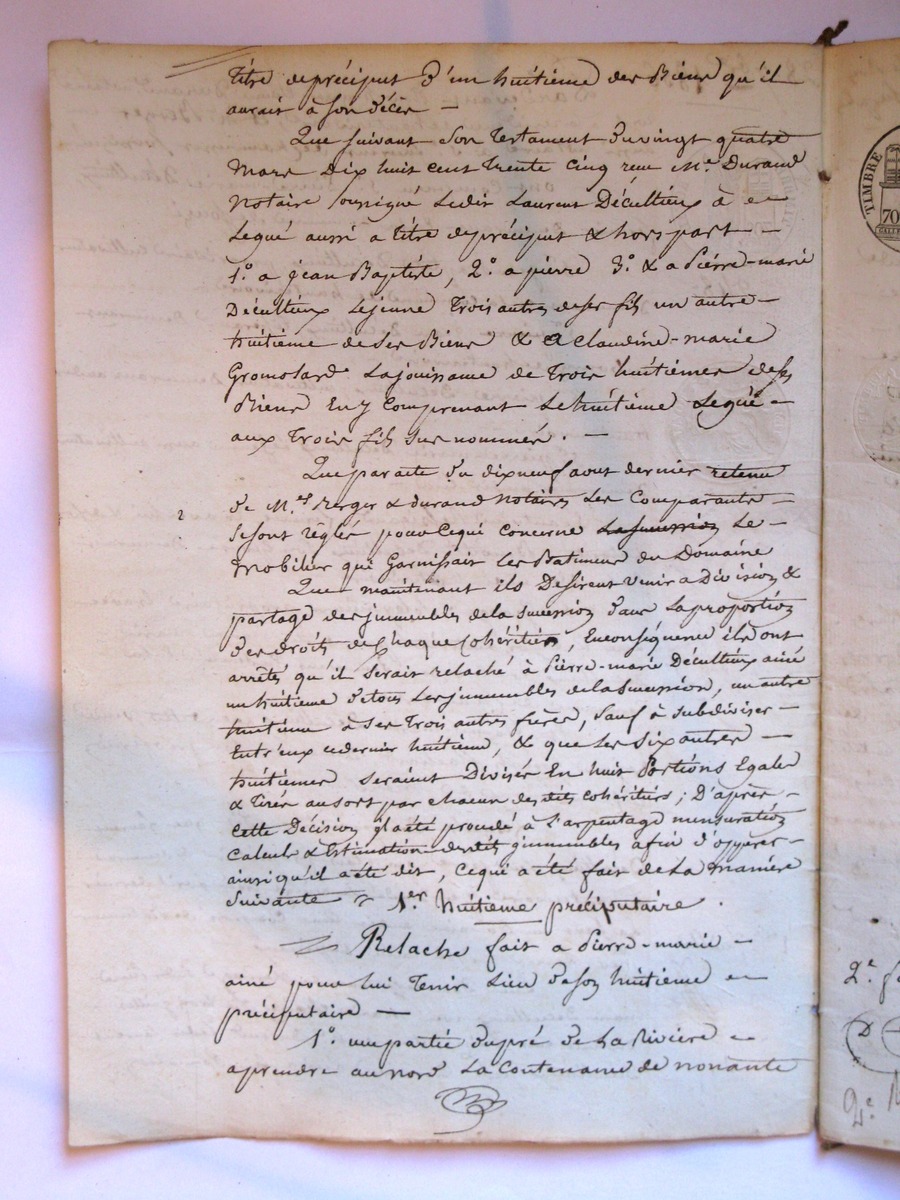 titre de préciput d'un huitième des Biens qu'il
aurait à son décès —
Que suivant son testament du vingt quatre
mars Dix huit cent trente cinq reçu Me. Durand
Notaire soussigné Ledit Laurent Décultieux à
Legué aussi a titre de préciput & hors part —
1o. a jean Baptiste, 2o. a pierre 3o. & a Pierre-marie
Décultieux Lejeune Trois autres de ses fils un autre —
huitième de ses Biens & a Claudine-marie
La jouissance de Trois huitièmes de ses
Biens En y Comprenant Le huitième Legué —
aux Trois fils sus nommés. —
Que par acte du dix neuf aout dernier retenu
2 de M.es Berger & durand Notaires Les Comparants —
se sont règlés pour ce qui concerne La succession Le —
Mobilier qui Garnissait Les Batiments du Domaine
Que maintenant ils Desirent venir a Division &
partage des immeubles de la succession dans La proportion
des droits de Chaque Cohéritiers, En conséquence ils ont
arrêtés qu'il serait relaché à Pierre-marie Décultieux ainé
un huitième de tous Les immeubles de la succession, un autre
huitième à ses Trois autres frères, sauf à subdiviser —
Entr'eux ce dernier huitième, & que Les six autres —
huitièmes seraient Divisés En huit Portions Egales
& tirés au sort par chacun desdits cohéritiers ; D'après —
cette Décision il a été procédé à L'arpentage mensuration
Calculs & Estimation desdits immeubles afin d'opperer —
ainsi qu'il a été dit, ce qui a été fait de La manière
suivante 1er. huitième préciputaire.
Relache fait a Pierre-marie —
ainé pour lui Tenir Lieu de son huitième
préciputaire —
1o. une partie du pré de La Rivière
a prendre au nord La Contenance de nonante
TIMBRE
70
2e.
D
2e.